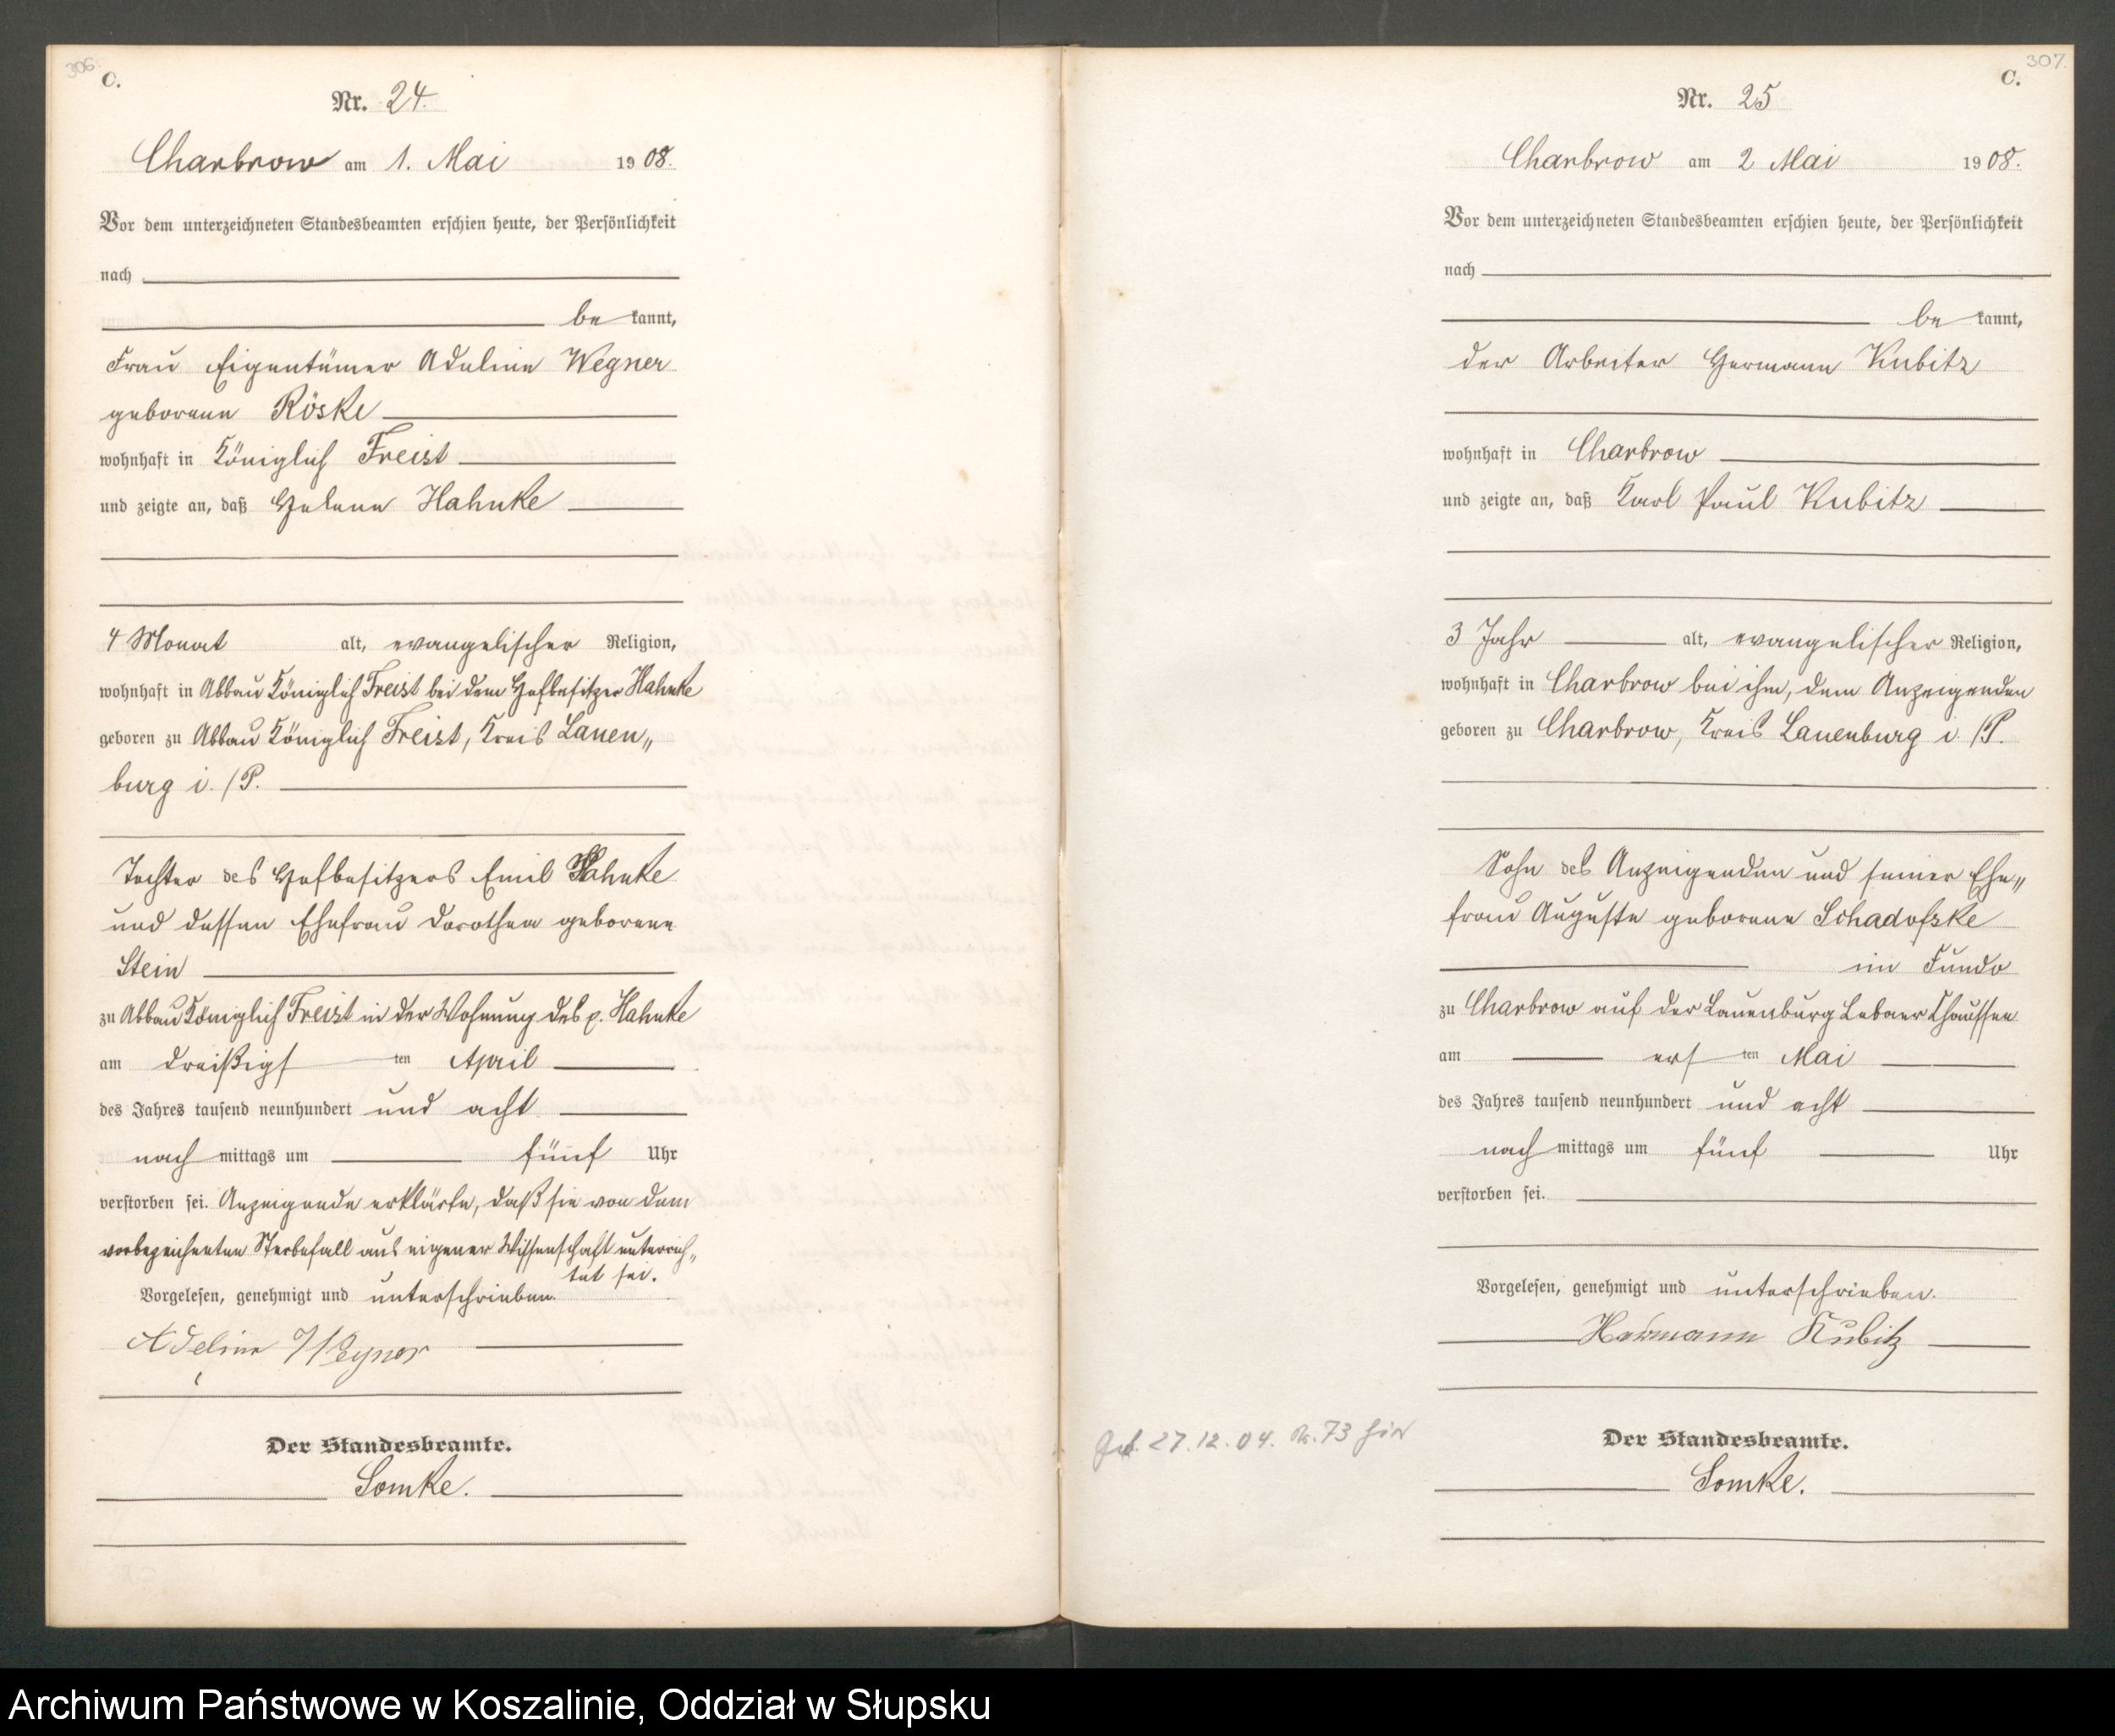 306.
C.
Nr. 24.
Charbrow am 1. Mai 1908.
Vor dem unterzeichneten Standesbeamten erschien heute, der Persönlichkeit
nach
be kannt,
Frau Eigentümer Adeline Wegner
geborene Röske
wohnhaft in Königlich Freist
und zeigte an, daß Helene Hahnke
4 Monat alt, evangelischer Religion,
wohnhaft in Abbau Königlich Freist bei dem Hofbesitzer Hahnke
geboren zu Abbau Königlich Freist, Kreis Lauen„
burg i./P.
Tochter des Hofbesitzers Emil Hahnke
und dessen Ehefrau Dorothea geborene
Stein
zu Abbau Königlich Freist in der Wohnung des p. Hahnke
am dreißigs ten April
des Jahres tausend neunhundert und acht
nach mittags um fünf Uhr
verstorben sei. Anzeigende erklärte, daß sie von dem
vorbezeichneten Sterbefall aus eigener Wissenschaft unterrich„
tet sei.
Vorgelesen, genehmigt und unterschrieben.
Adeline Wegner
Der Standesbeamte.
Somke.
307.
C.
Nr. 25
Charbrow am 2 Mai 1908.
Vor dem unterzeichneten Standesbeamten erschien heute, der Persönlichkeit
nach
be kannt,
der Arbeiter Hermann Kubitz
wohnhaft in Charbrow
und zeigte an, daß Karl Paul Kubitz
3 Jahr alt, evangelischer Religion,
wohnhaft in Charbrow bei ihm, dem Anzeigenden
geboren zu Charbrow, Kreis Lauenburg i./P.
Sohn des Anzeigenden und seiner Ehe„
frau Auguste geborene Schadofske
im Fundo
zu Charbrow auf der Lauenburg Lebaer Chaussee
am ers ten Mai
des Jahres tausend neunhundert und acht
nach mittags um fünf Uhr
verstorben sei.
Vorgelesen, genehmigt und unterschrieben.
Hermann Kubitz
Geb. 27.12.04. Nr. 73 hier
Der Standesbeamte.
Somke.
Archiwum Państwowe w Koszalinie, Oddział w Słupsku